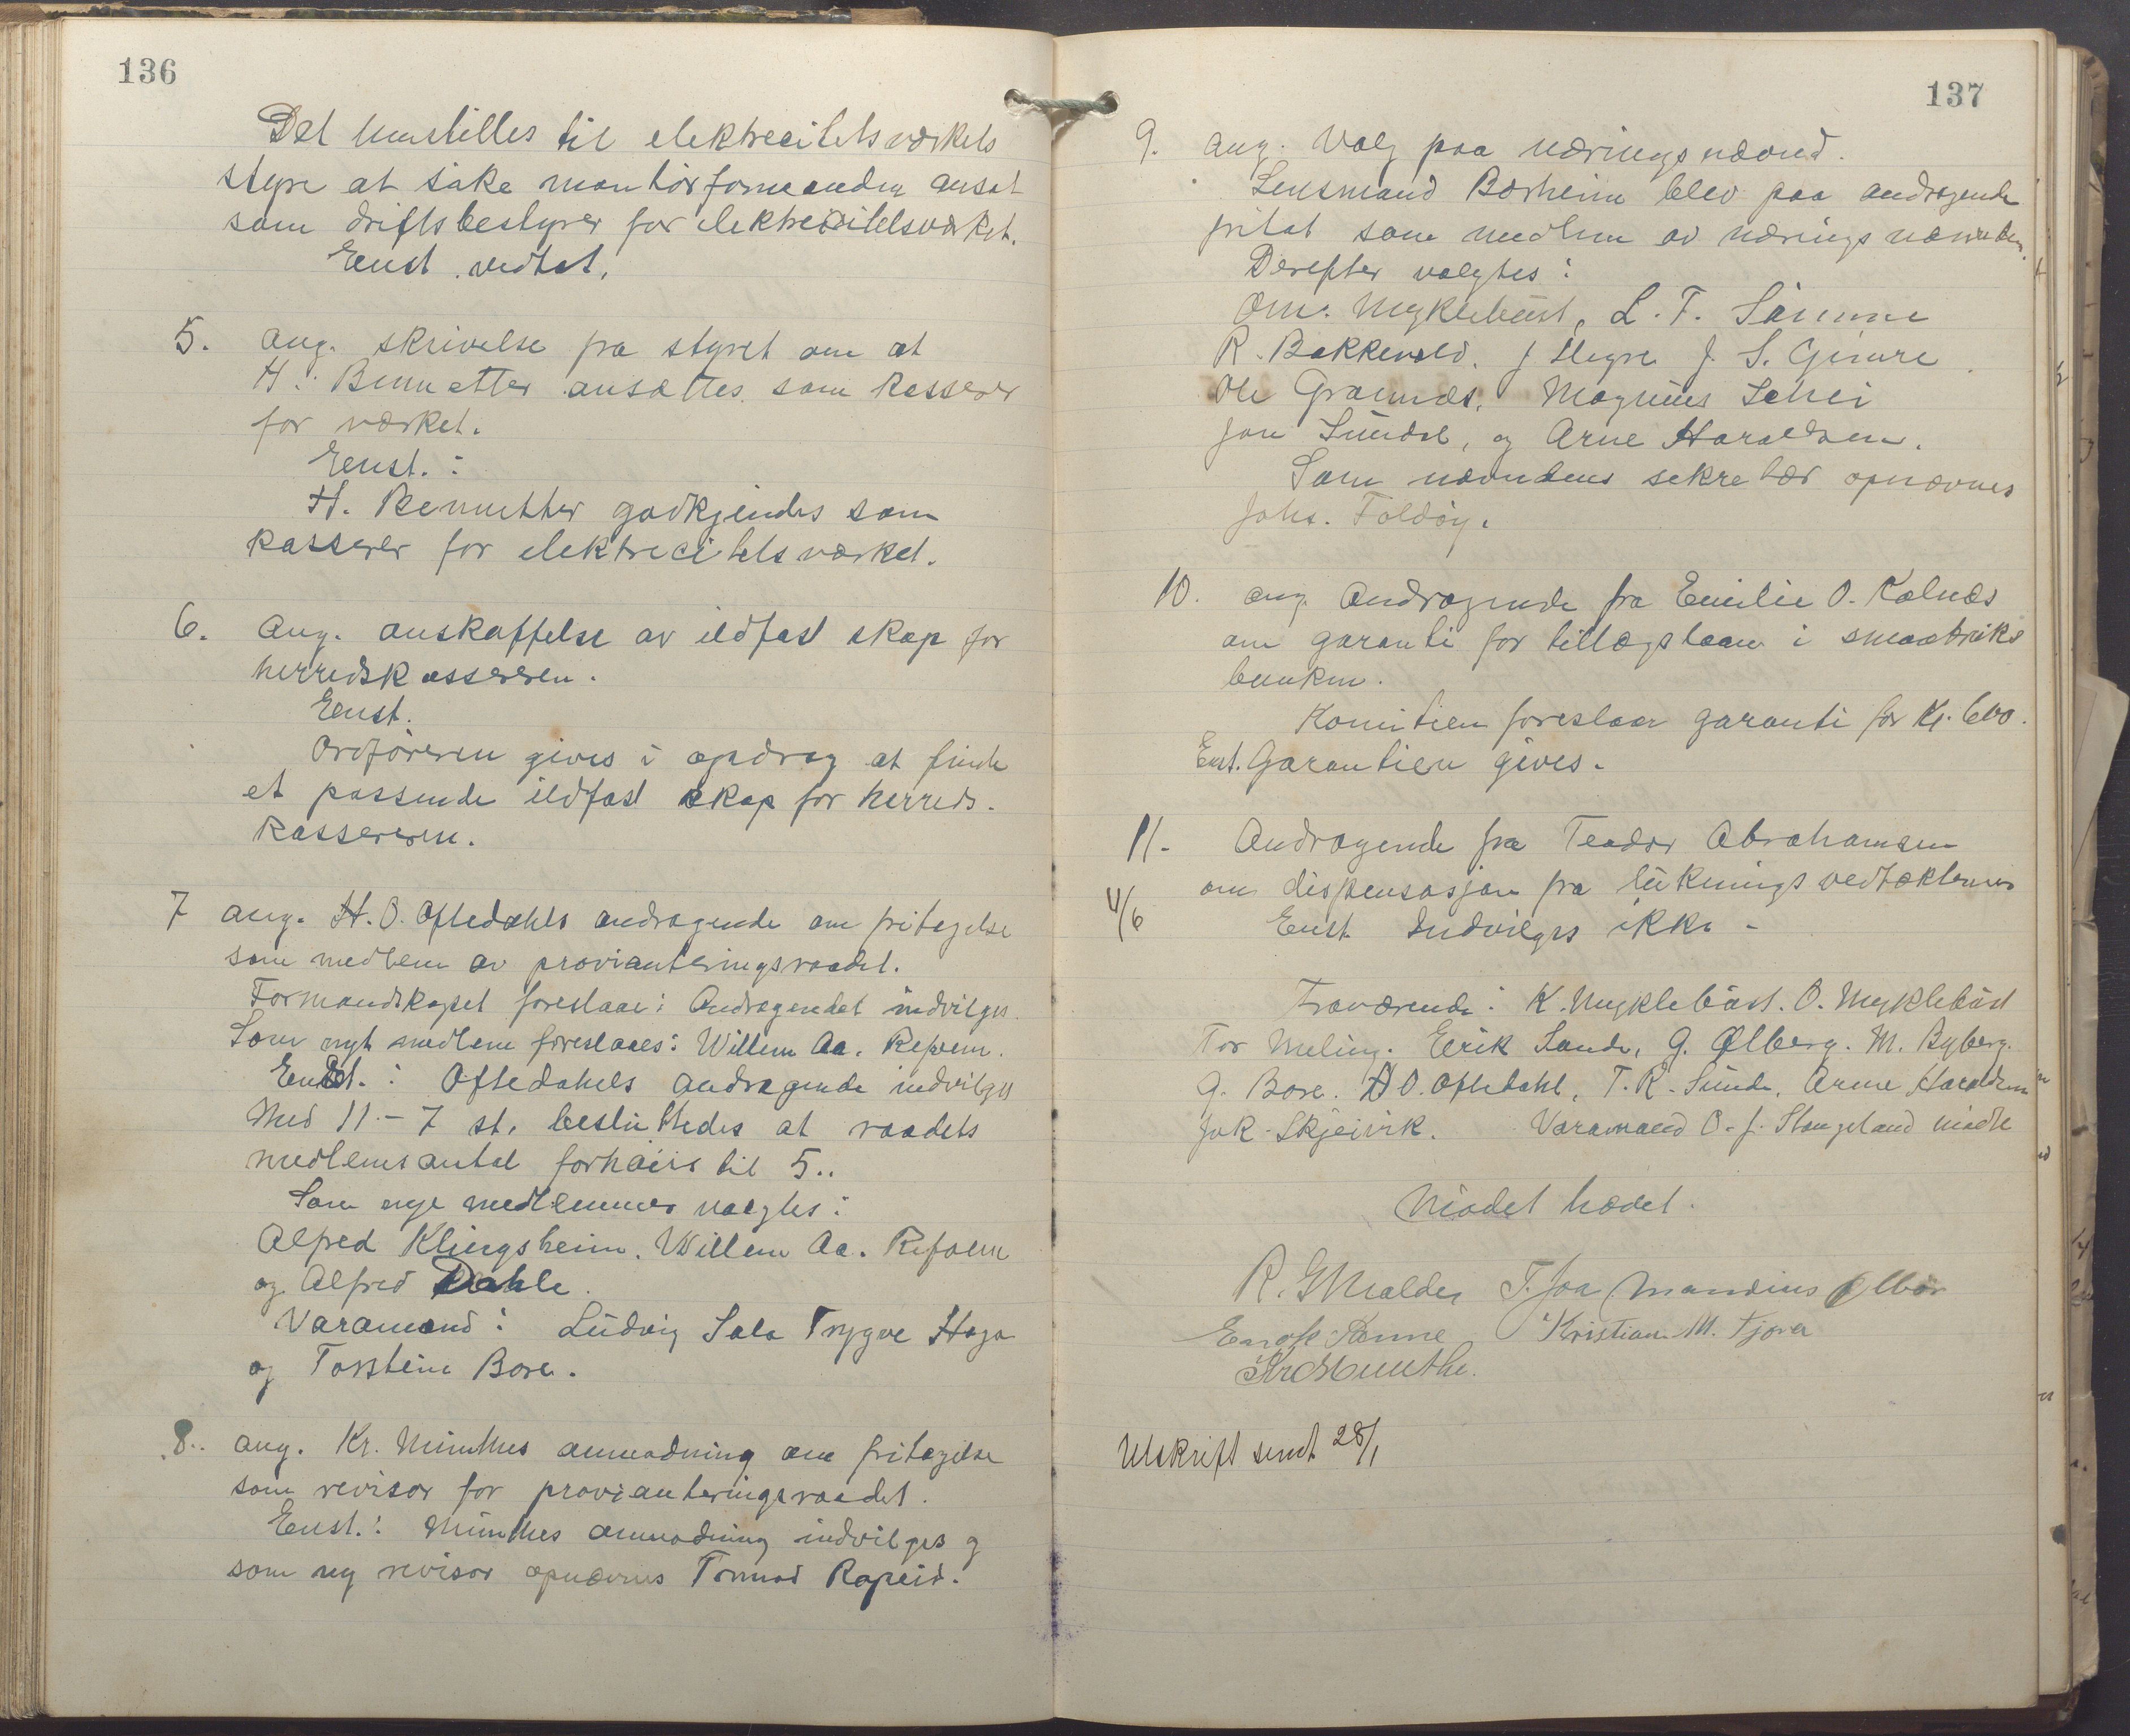 136
Det henstilles til elektrecitetsværkets
styre at søke montørformanden ansat
som driftsbestyrer for elektrecitetsværket.
Enst. vedtat.
5. ang. skrivelse fra styret om at
H. Bennetter ansættes som kasserer
for værket.
Enst. :
H. Bennetter godkjendes som
kasserer for elektrecitetsværket.
6. Ang. anskaffelse av ildfast skap for
herredskassereren.
Enst.
Ordføreren gives i opdrag at finde
et passende ildfast skap for herreds-
kassereren.
7 ang. H. O. Oftedahls andragende om fritagelse
som medlem av provianteringsraadet.
Formandskapet foreslaar: Andragendet indvilges.
Som nyt medlem foreslaaes: Willem Aa. Refsem.
Enst. : Oftedahls andragende indvilges
Med 11 - 7 st. besluttedes at raadets
medlemsantal forhøies til 5..
Som nye medlemmer valgtes :
Alfred Klingsheim. Willem Aa. Refsem
og Alfred Dahle.
Varamænd : Ludvig Sola Trygve Haga
og Torstein Bore.
8.. ang. Kr. Munthes anmodning om fritagelse
som revisor for provianteringsraadet.
Enst. : Munthes anmodning indvilges og
som ny revisor opnævnes Tormod Rapeid.
137
9. ang. Valg paa næringsnævnd.
Lensmand Borheim blev paa andragende
fritat som medlem av næringsnævnden.
Derefter valgtes :
Om. Myklebust, L. T. Sømme
R. Bakkevold. J Hegre J. S. Gimre
Ole Grannes. Magnus Schei
Jon Sundal, og Arne Haraldsen.
Som nævndens sekretær opnævnes
Johs. Foldøy.
10. ang. Andragende fra Emilie O. Kalnæs
om garanti for tillægslaan i smaabruks
banken.
Komiteen foreslaar garanti for Kr. 600.
Enst. Garantien gives.
11. Andragende fra Teodor Abrahamsen
om dispensasjon fra lukningsvedtækterne
4/6 Enst. Indvilges ikke -
Fraværende : K. Myklebust. O. Myklebust
Tor Meling. Eirik Sande, G. Ølberg. M. Byberg.
G. Bore. H O. Oftedahl, T. R. Sunde, Arne Haraldsen
Jak. Skjeivik. Varamand O. J. Stangeland møtte
Møtet hævet.
R. G Malde T. Joa Mandius Ølbør
Enok Sømme Kristian M. Tjora
Kr Munthe.
Utskrift sendt 28/1